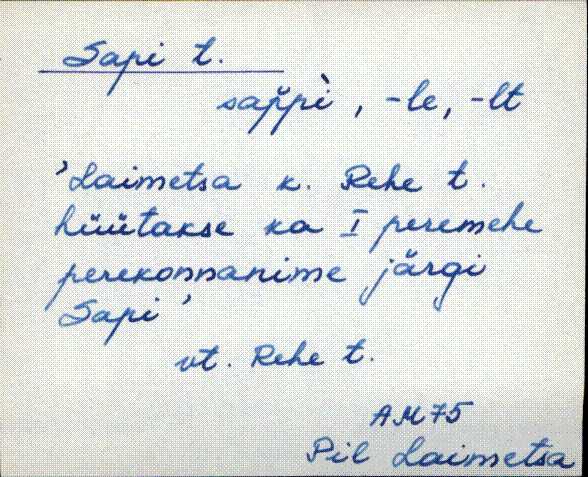 Sapi t.
sap̆pì, -le, -lt
'Laimetsa k. Rehe t.
hüütakse ka I peremehe
perekonnanime järgi
Sapi'
vt. Rehe t.
AM75
Pil Laimetsa